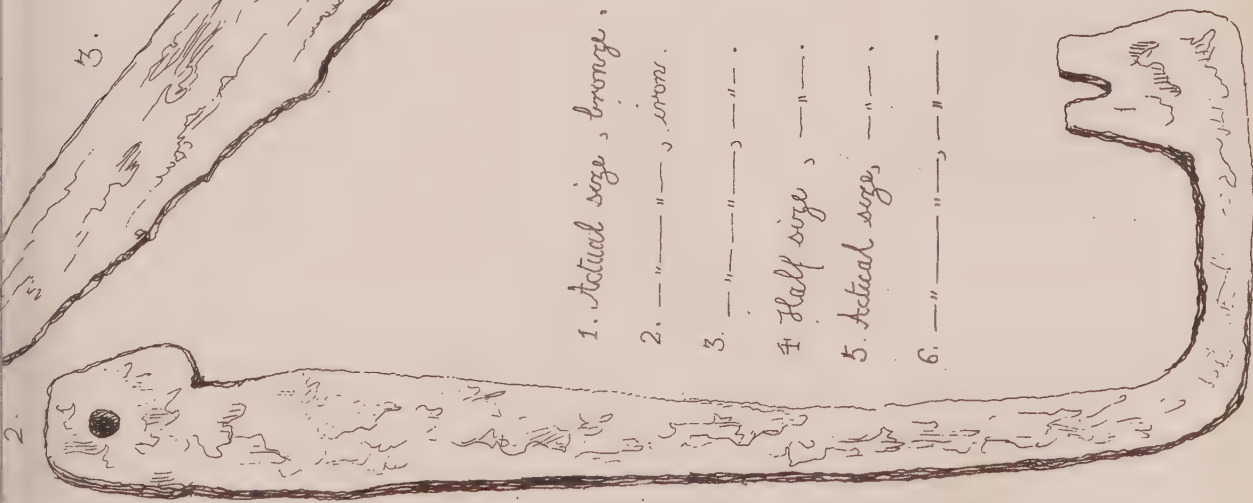 3.
2.
1. Actual size, bronze.
2. — " —, iron.
3. — " —, — " —.
4 Half size, — " —.
5. Actical size, — " —.
6. — " —, — " —.